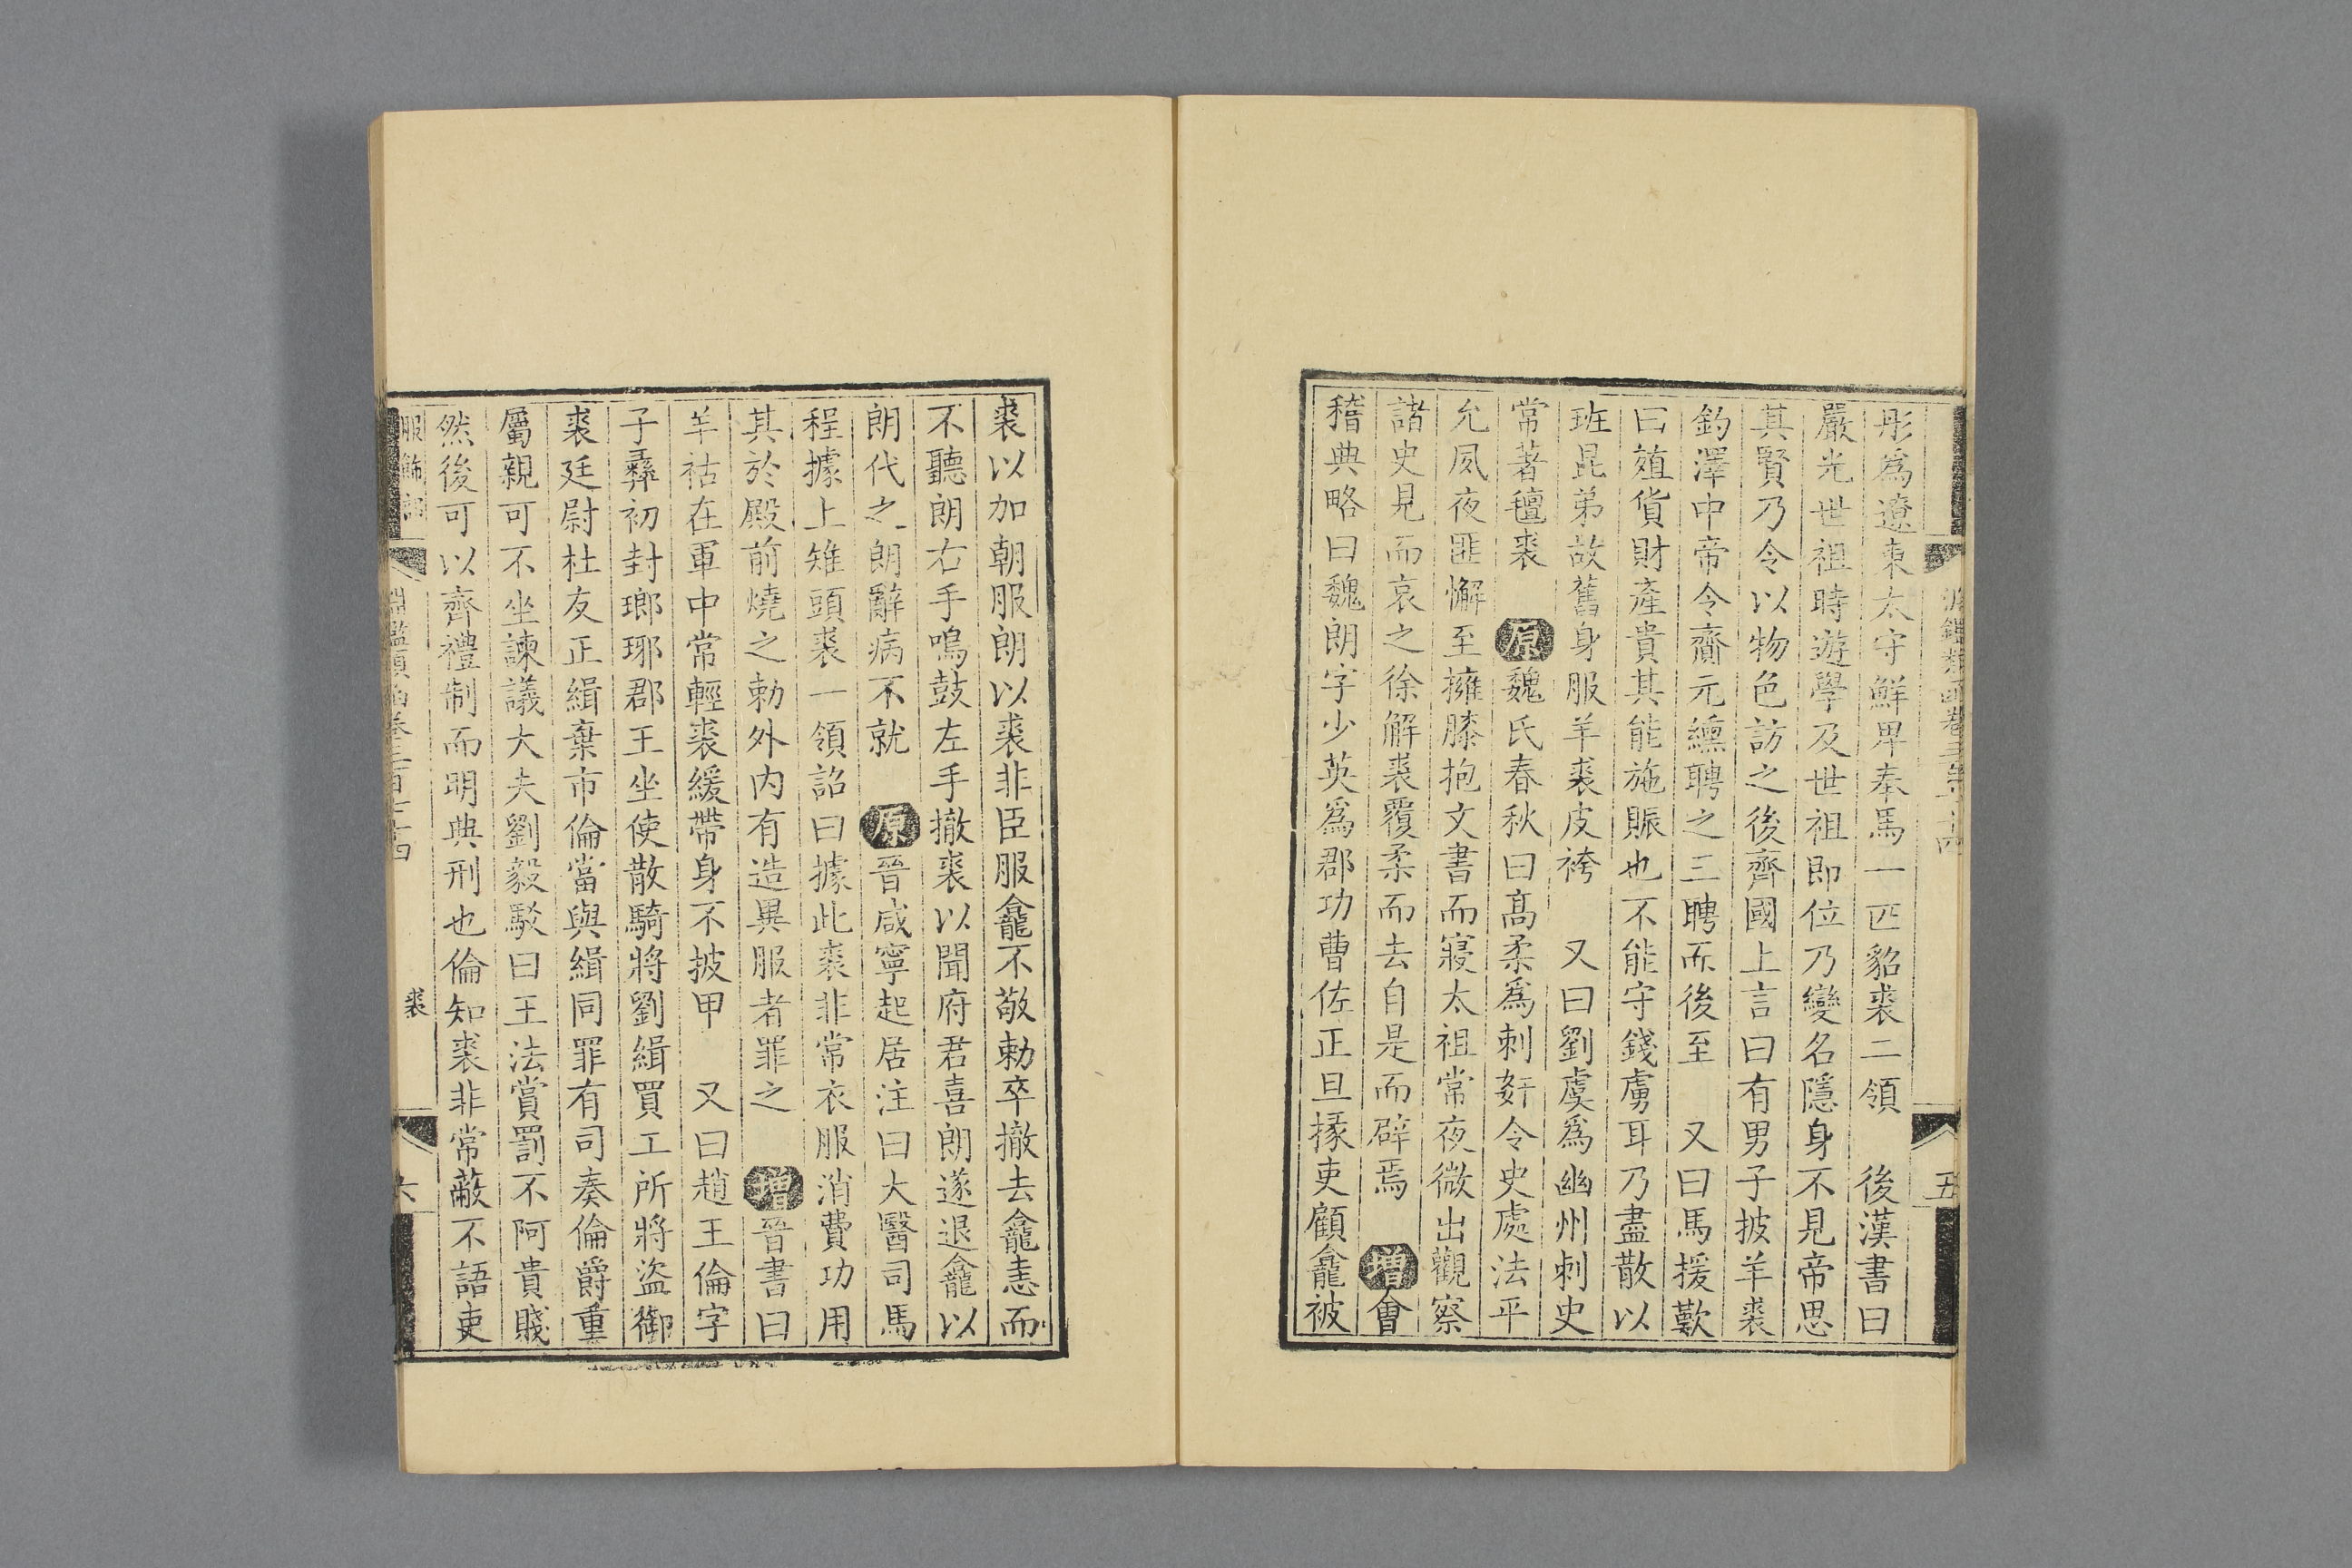 淵鑑類函卷三百七十四
五
彤爲遼東太守鮮卑奉馬一匹貂裘二領　後漢書曰
嚴光世祖時遊學及世祖即位乃變名隱身不見帝思
其賢乃令以物色訪之後齊國上言曰有男子披羊裘
釣澤中帝令齎元纁聘之三聘而後至　又曰馬援歎
曰殖貨財產貴其能施賑也不能守錢虜耳乃盡散以
班昆弟故舊身服羊裘皮袴　又曰劉虞爲幽州刺史
常著氊裘　原魏氏春秋曰高柔爲刺奸令史處法平
允夙夜匪懈至擁膝抱文書而寢太祖常夜微出觀察
諸史見而哀之徐解裘覆柔而去自是而辟焉　增會
稽典略曰魏朗字少英爲郡功曹佐正旦掾吏顧龕被
裘以加朝服朗以裘非臣服龕不敬勅卒撤去龕恚而
不聽朗右手鳴鼓左手撤裘以聞府君喜朗遂退龕以
朗代之朗辭病不就　原晉咸寧起居注曰大醫司馬
程據上雉頭裘一領詔曰據此裘非常衣服消費功用
其於殿前燒之勅外內有造異服者罪之　增晉書曰
羊祜在軍中常輕裘緩帶身不披甲　又曰趙王倫字
子彝初封瑯琊郡王坐使散騎將劉緝買工所將盜御
裘廷尉杜友正緝棄市倫當與緝同罪有司奏倫爵重
屬親可不坐諫議大夫劉毅駁曰王法賞罰不阿貴賤
然後可以齊禮制而明典刑也倫知裘非常蔽不語吏
服飾部
淵鑑類函卷三百七十四
裘
六